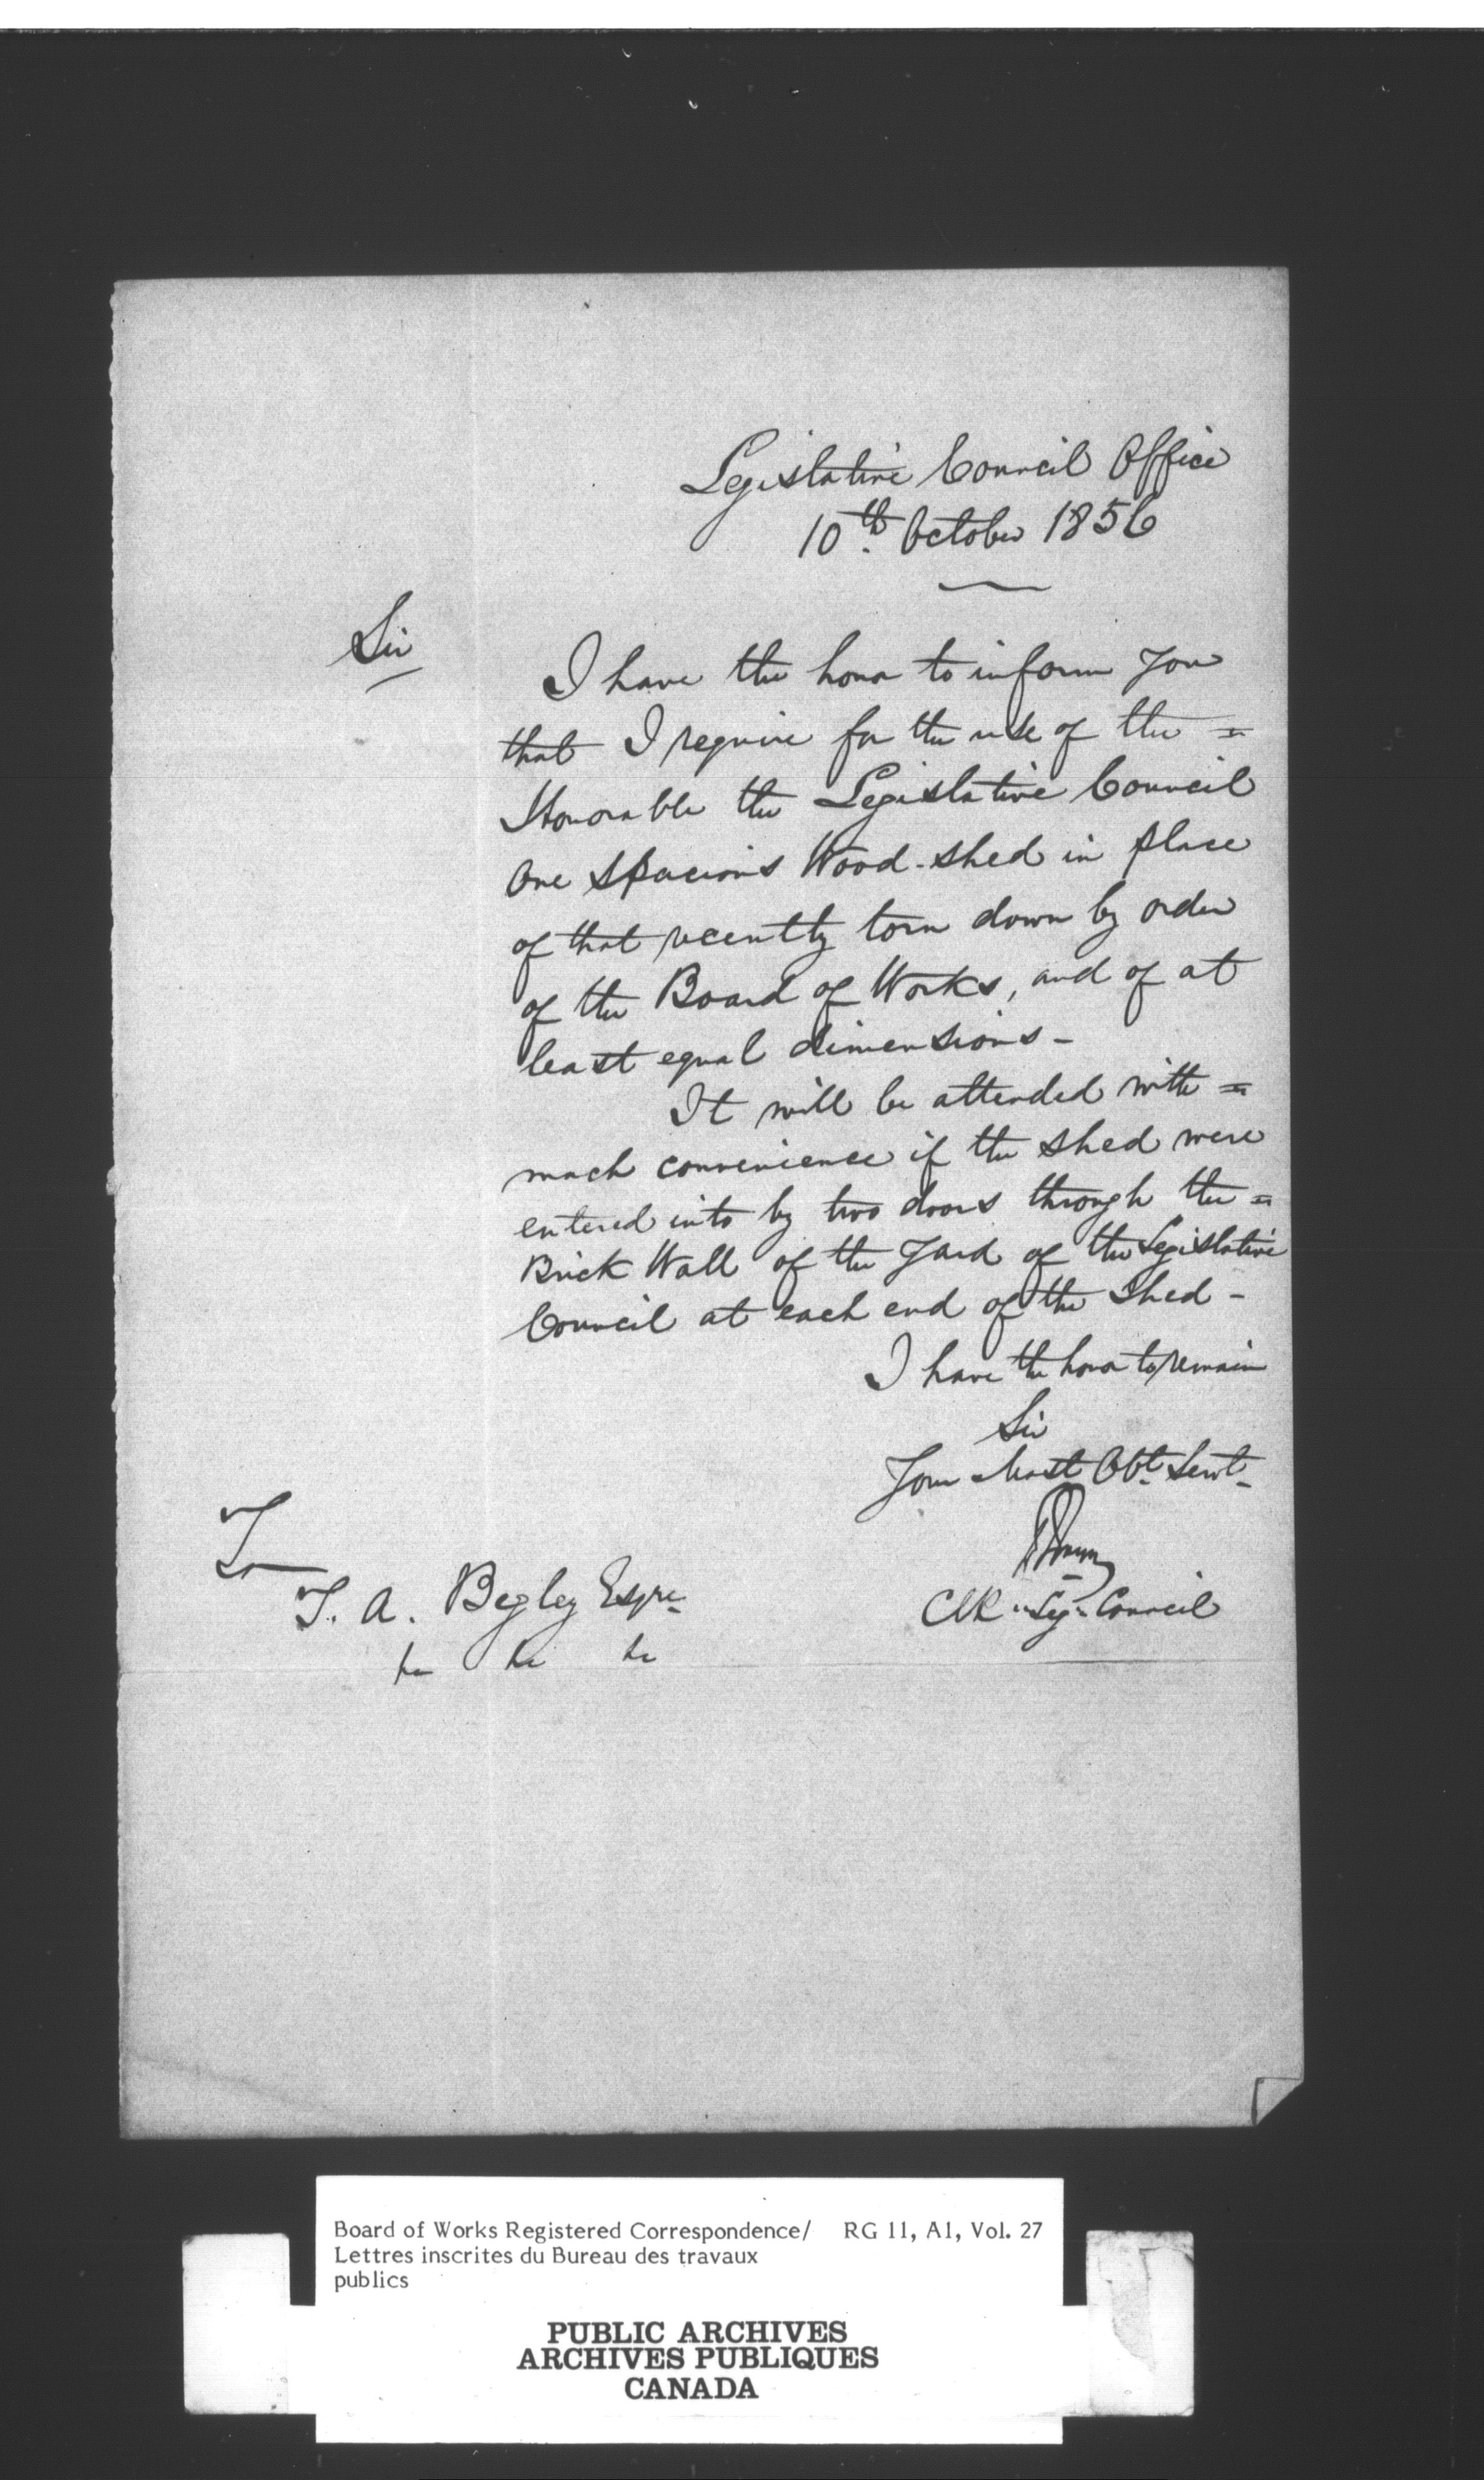 Legislative Council Office
10th. October 1856
Sir
I have the honor to inform you
that I require for the use of the =
Honorable the Legislative Council
One spacious Wood-shed in place
of that recently torn down by order
of the Board of Works, and of at
least equal dimensions -
It will be attended with =
much convenience if the shed were
entered into by two doors through the =
Brick Wall of the Yard of the Legislative
Council at each end of the Shed -
I have the honor to remain
Sir
Your Most Obt. Servt.
Clk "Leg" Council
To
T. A. Begley Esqre.
Board of Works Registered Correspondence/ RG 11, A1, Vol. 27
Lettres inscrites du Bureau des travaux
publics
PUBLIC ARCHIVES
ARCHIVES PUBLIQUES
CANADA